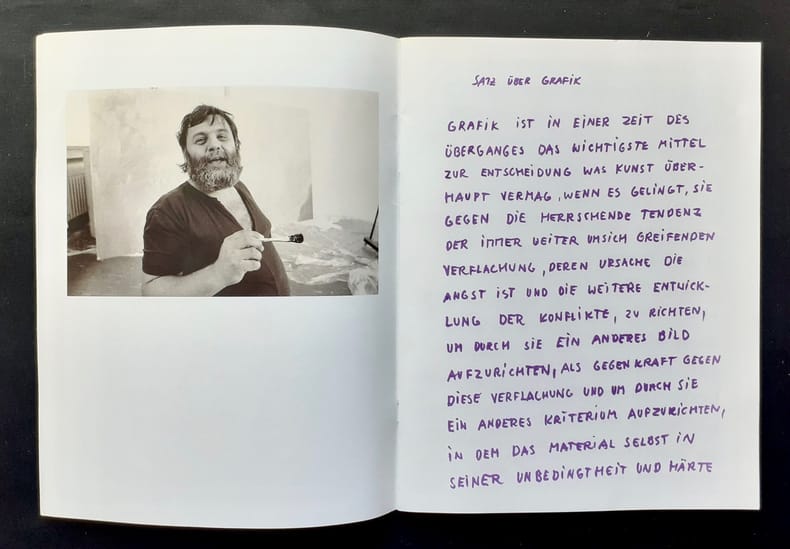 SATZ ÜBER GRAFIK
GRAFIK IST IN EINER ZEIT DES
ÜBERGANGES DAS WICHTIGSTE MITTEL
ZUR ENTSCHEIDUNG WAS KUNST ÜBER-
HAUPT VERMAG, WENN ES GELINGT, SIE
GEGEN DIE HERRSCHENDE TENDENZ
DER IMMER WEITER UMSICH GREIFENDEN
VERFLACHUNG, DEREN URSACHE DIE
ANGST IST UND DIE WEITERE ENTWICK-
LUNG DER KONFLIKTE, ZU RICHTEN,
UM DURCH SIE EIN ANDERES BILD
AUFZURICHTEN, ALS GEGENKRAFT GEGEN
DIESE VERFLACHUNG UND UM DURCH SIE
EIN ANDERES KRITERIUM AUFZURICHTEN,
IN DEM DAS MATERIAL SELBST IN
SEINER UNBEDINGTHEIT UND HÄRTE